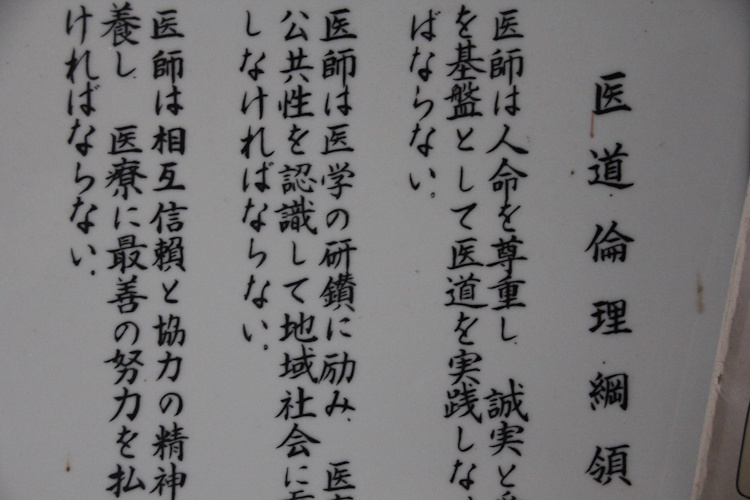 医道倫理綱領
医師は人命を尊重し 誠実と
を基盤として医道を実践しな
ばならない。
医師は医学の研鑽に励み 医
公共性を認識して地域社会に
しなければならない。
医師は相互信頼と協力の精神
養し 医療に最善の努力を払
ければならない。